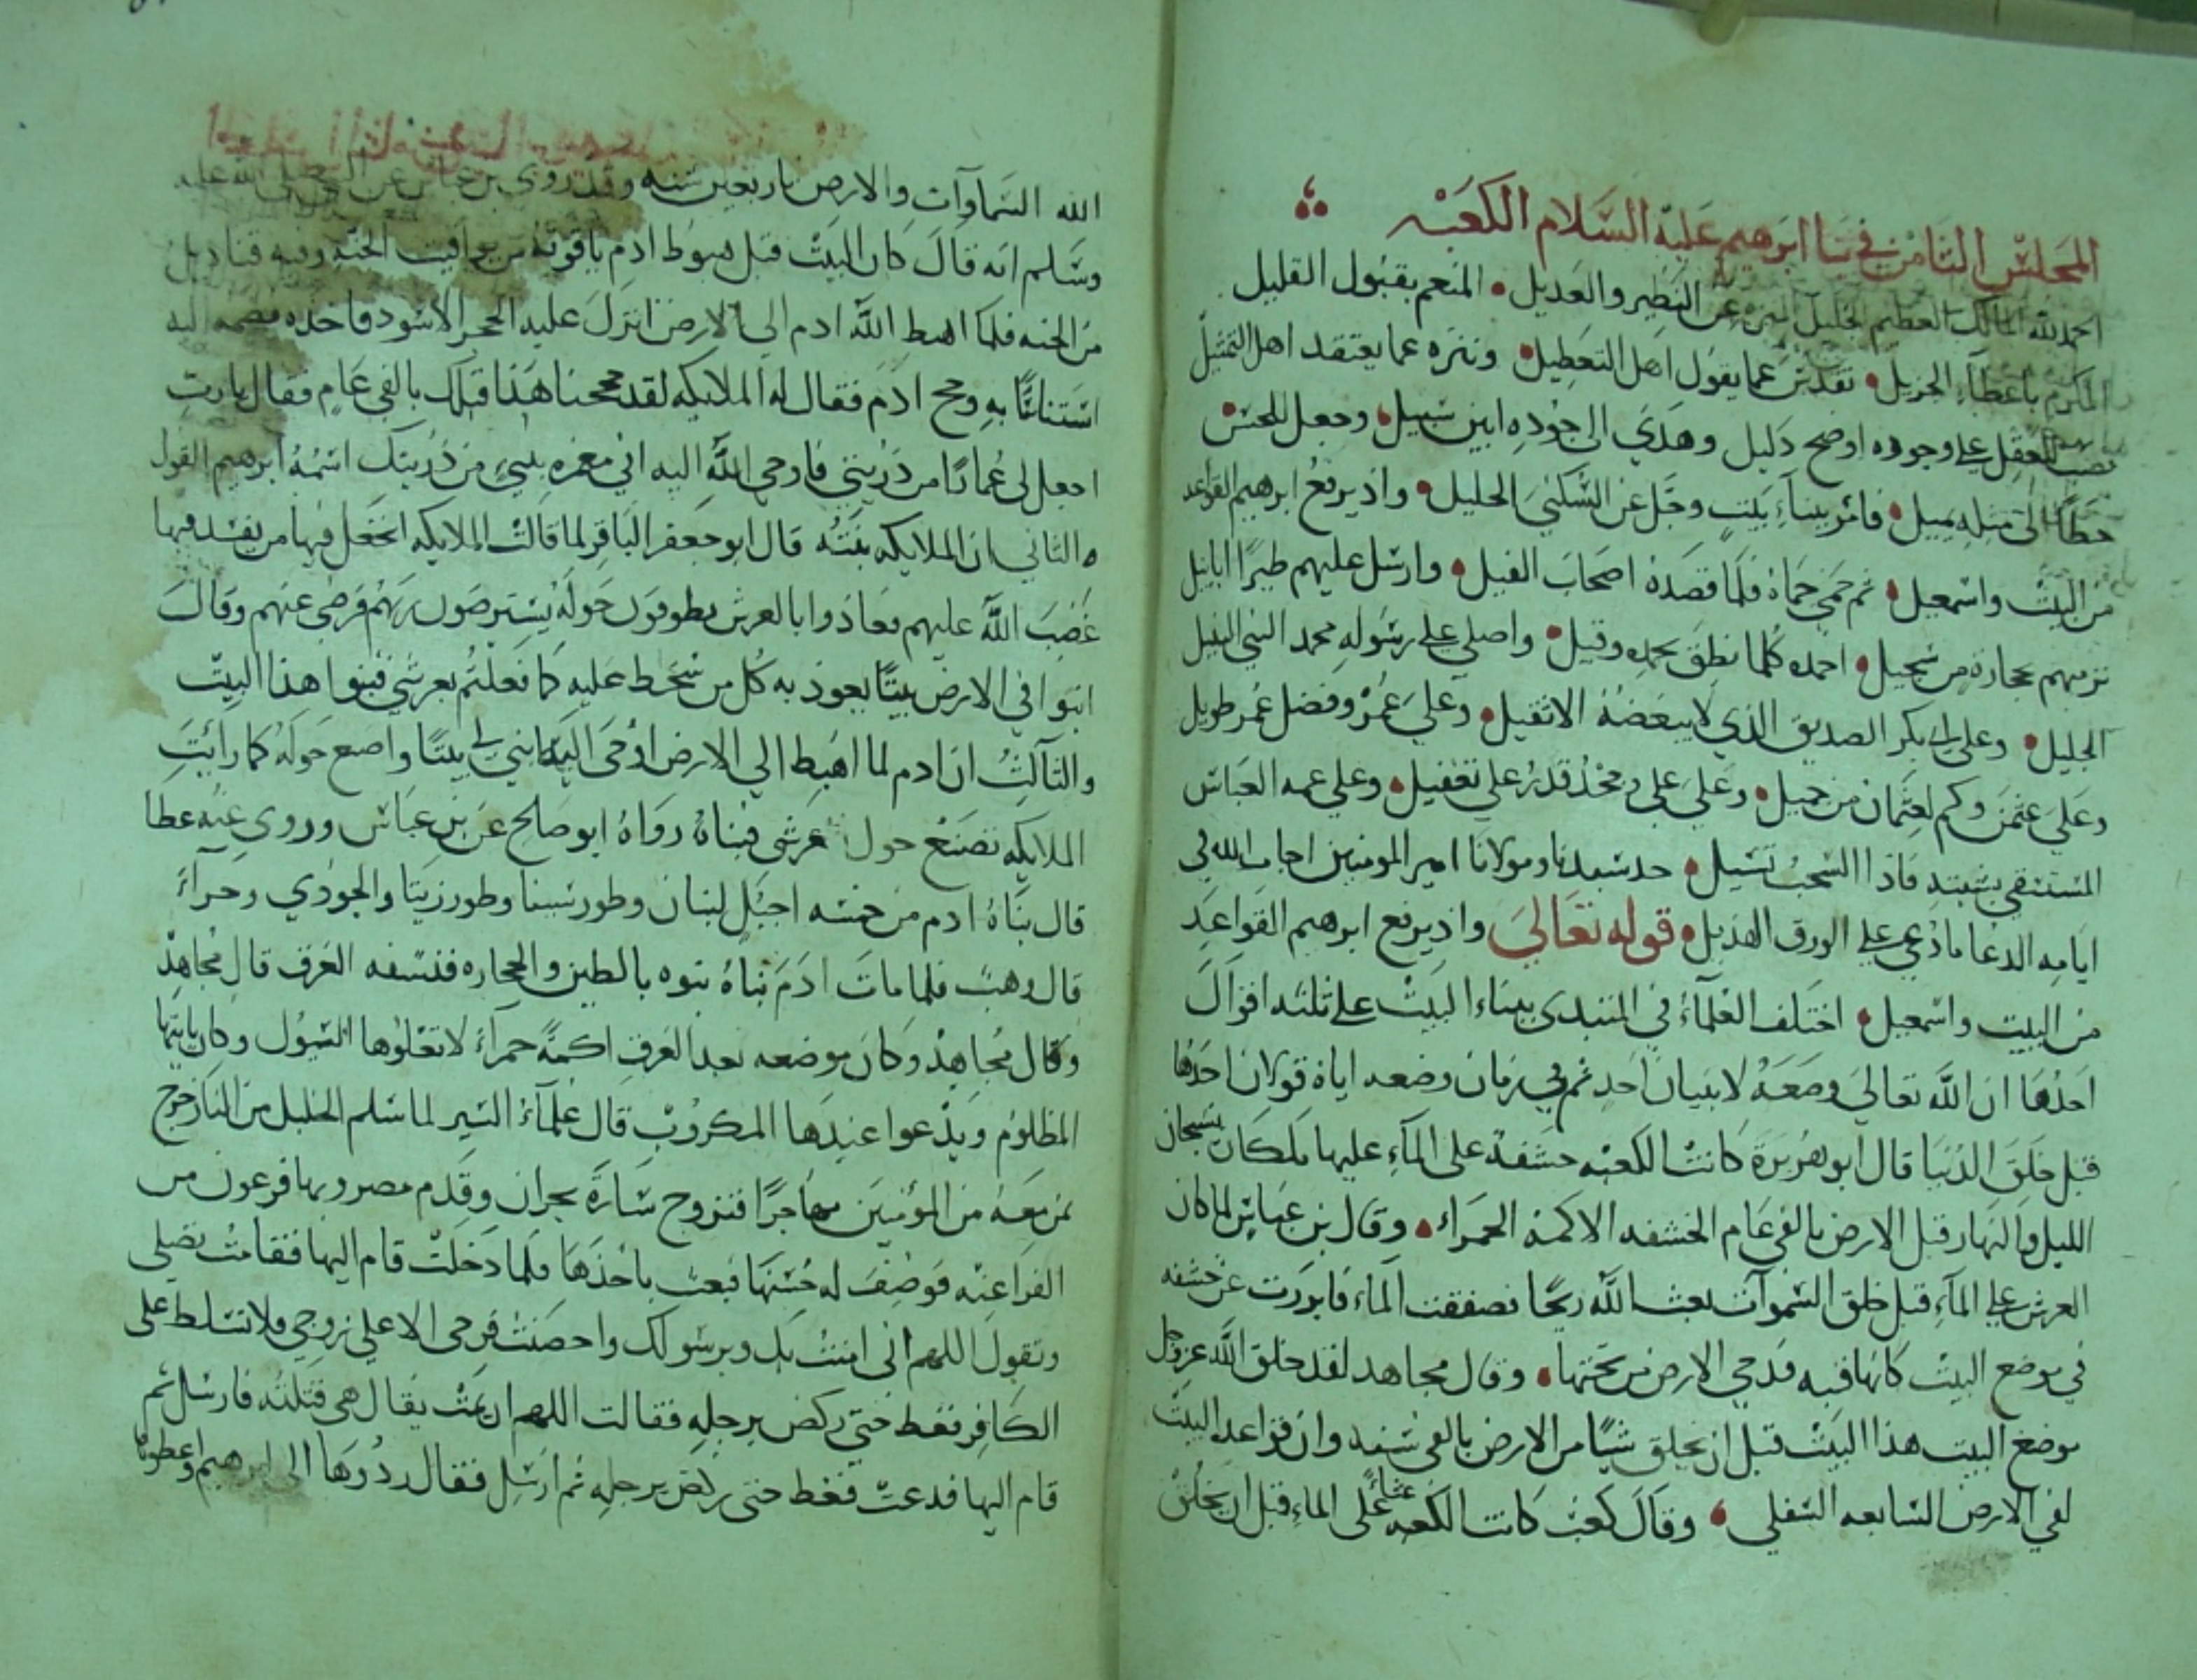 المجلس الثامن في بنا ابرهيم عليه السلام الكعبه
الحمد لله المالك العظيم الجليل المنزه عن النظير والعديل المنعم بقبول القليل
المكرم باعطاء الجزيل تقدس عما يقول اهل التعطيل وتنزه عما يعتقد اهل التمثيل
نصب للعقل على وجوده اوضح دليل وهدي الى جوده ابين سبيل وجعل للحسن
حظا الى مثله يميل فامر ببناء بيت وجل عن السكنى الجليل واذ يرفع ابرهيم القواعد
من البيت واسمعيل ثم حمى حماه فلما قصده اصحاب الفيل وارسل عليهم طيرا ابابيل
ترميهم بحجارة من سجيل احمده كلما نطق بحمده وقيل واصلي على رسوله محمد النبي النبيل
الجليل وعلى ابي بكر الصديق الذي لا يبغضه الا ثقيل وعلى عمر وفضل عمر طويل
وعلى عثمن وكم لعثمان من جميل وعلى علي وجحد قدر علي تغفيل وعلى عمه العباس
المستسقى بشيبته فاذا السحب تسيل جد سيدنا ومولانا امير المومنين اجاب الله في
ايامه الدعا ما دعي على الورق الهديل قوله تعالى واذ يرفع ابرهيم القواعد
من البيت واسمعيل اختلف العلماء في المبتدي ببناء البيت على ثلثه اقوال
احدها ان الله تعالى وضعه لا ببنيان احد ثم في زمان وضعه اياه قولان احدها
قبل خلق الدنيا قال ابو هريرة كانت الكعبه حشفة على الماء عليها ملكان يسبحان
الليل والنهار قبل الارض بالفي عام الخشفه الاكمة الحمراء وقال بن عباس لما كان
العرش على الماء قبل خلق السموات بعث الله ريحا فصفقت الماء فابرزت عن خشفه
في موضع البيت كانها قبه فدحي الارض من تحتها وقال مجاهد لقد خلق الله عز وجل
موضع البيت هذا البيت قبل ان يخلق شيا من الارض بالفي سنه وان قواعد البيت
لفي الارض السابعه السفلي وقال كعب كانت الكعبه غثاء على الماء قبل ان يخلق
الله السماوات والارض باربعين سنه وقد روى بن عباس عن النبي صلى الله عليه
وسلم انه قال كان البيت قبل هبوط ادم ياقوتة من يواقيت الجنه وفيه قناديل
من الجنه فلما اهبط الله ادم الى الارض انزل عليه الحجر الاسود فاخذه فضمه اليه
استناسا به وحج ادم فقال له الملايكه لقد حججنا هذا قبلك بالفي عام فقال يا رب
اجعل لي عمارا من ذريتي فاوحى الله اليه اني معمره بنبي من ذريتك اسمه ابرهيم القول
الثاني ان الملايكه بنته قال ابو جعفر الباقر لما قالت الملايكه اتجعل فيها من يفسد فيها
غضب الله عليهم فعاذوا بالعرش يطوفون حوله يسترضون ربهم فرضي عنهم وقال
ابنوا في الارض بيتا يعوذ به كل من سخطت عليه كما فعلتم بعرشي فبنوا هذا البيت
والثالث ان ادم لما اهبط الى الارض اوحى اليه ابني لي بيتا واصنع حوله كما رأيت
الملايكه تصنع حول عرشي فبناه رواه ابو صالح عن بن عباس وروى عنه عطا
قال بناه ادم من خمسه اجبل لبنان وطور سينا وطور زيتا والجودي وحراء
قال وهب فلما مات ادم بناه بنوه بالطين والحجاره فنسفه الغرق قال مجاهد
وقال مجاهد وكان موضعه بعد الغرق اكمة حمراء لا تعلوها السيول وكان ياتيها
المظلوم ويدعوا عندها المكروب قال علماء السير لما سلم الخليل من النار خرج
بمن معه من المؤمنين مهاجرا فتزوج سارة بحران وقدم مصر وبها فرعون من
الفراعنه فوصف له حسنها فبعث باخذها فلما دخلت قام اليها فقامت تصلى
وتقول اللهم اني امنت بك وبرسولك واحصنت فرجى الا على زوجي فلا تسلط على
الكافر فغط حتى ركض برجله فقالت اللهم ان يمت يقال هي قتلته فارسل ثم
قام اليها فدعت فغط حتى ركض برجله ثم ارسل فقال ردوها الى ابرهيم واعطوها